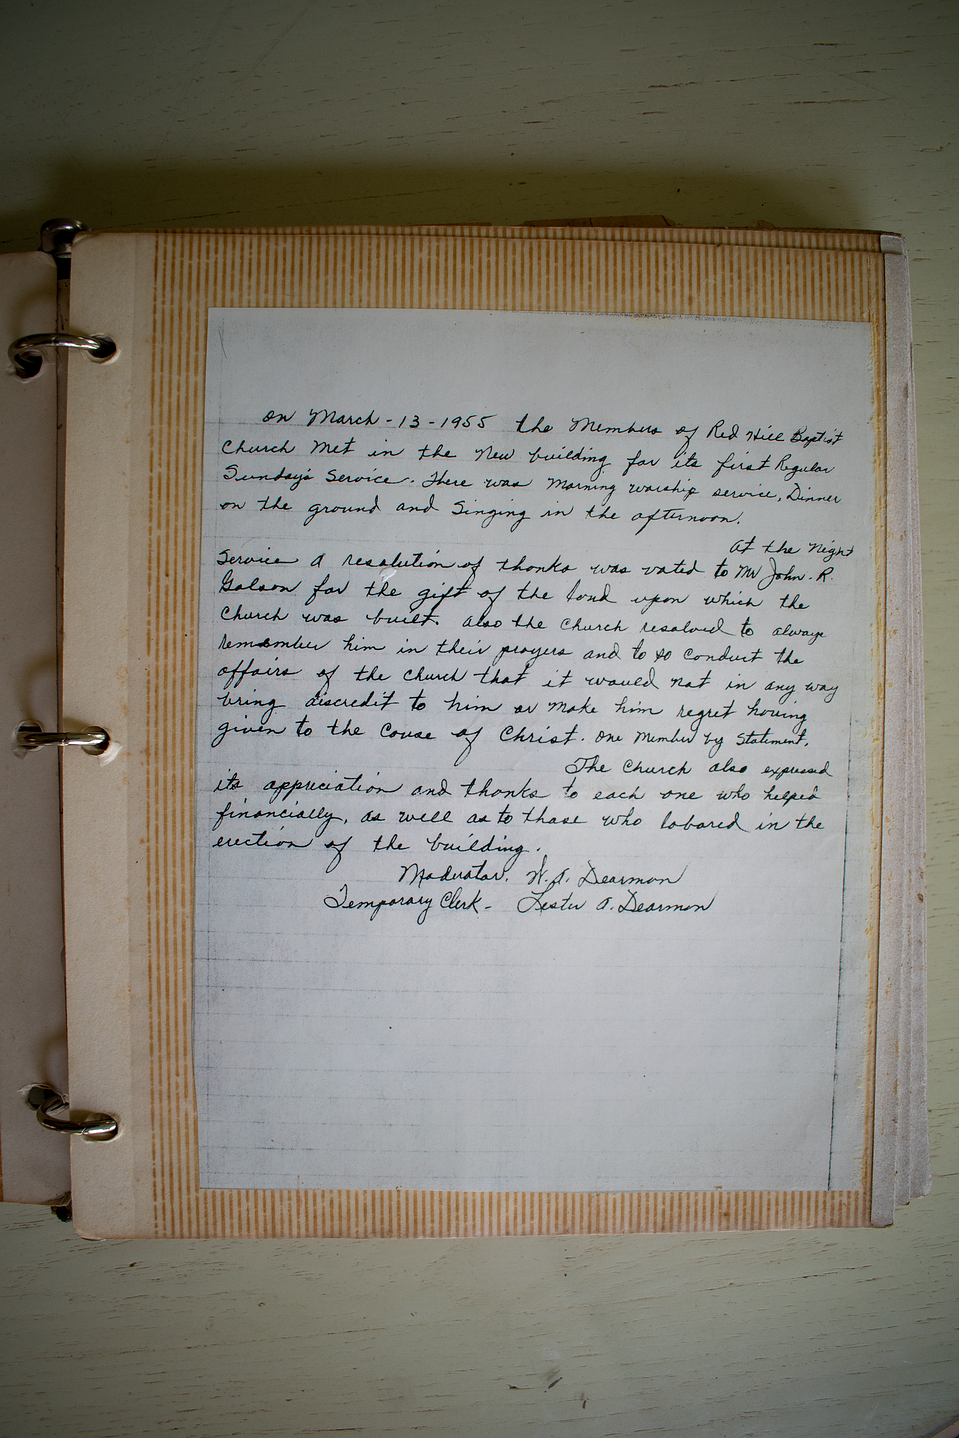 on March - 13 - 1955 the Members of Red Hill Baptist
Church Met in the New building for its first Regular
Sunday's Service. There was Morning worship service, Dinner
on the ground and Singing in the afternoon.
At the Night
Service a resolution of thanks was voted to Mr John. R.
Golson for the gift of the land upon which the
Church was built. Also the Church resolved to always
remember him in their prayers and to so conduct the
affairs of the church that it would not in any way
bring discredit to him or make him regret having
given to the Cause of Christ. One Member by Statement.
The Church also expressed
its appriciation and thanks to each one who helped
financially, as well as to those who labored in the
erection of the building.
Moderator. W. A. Dearmon
Temporary Clerk - Lester A. Dearmon